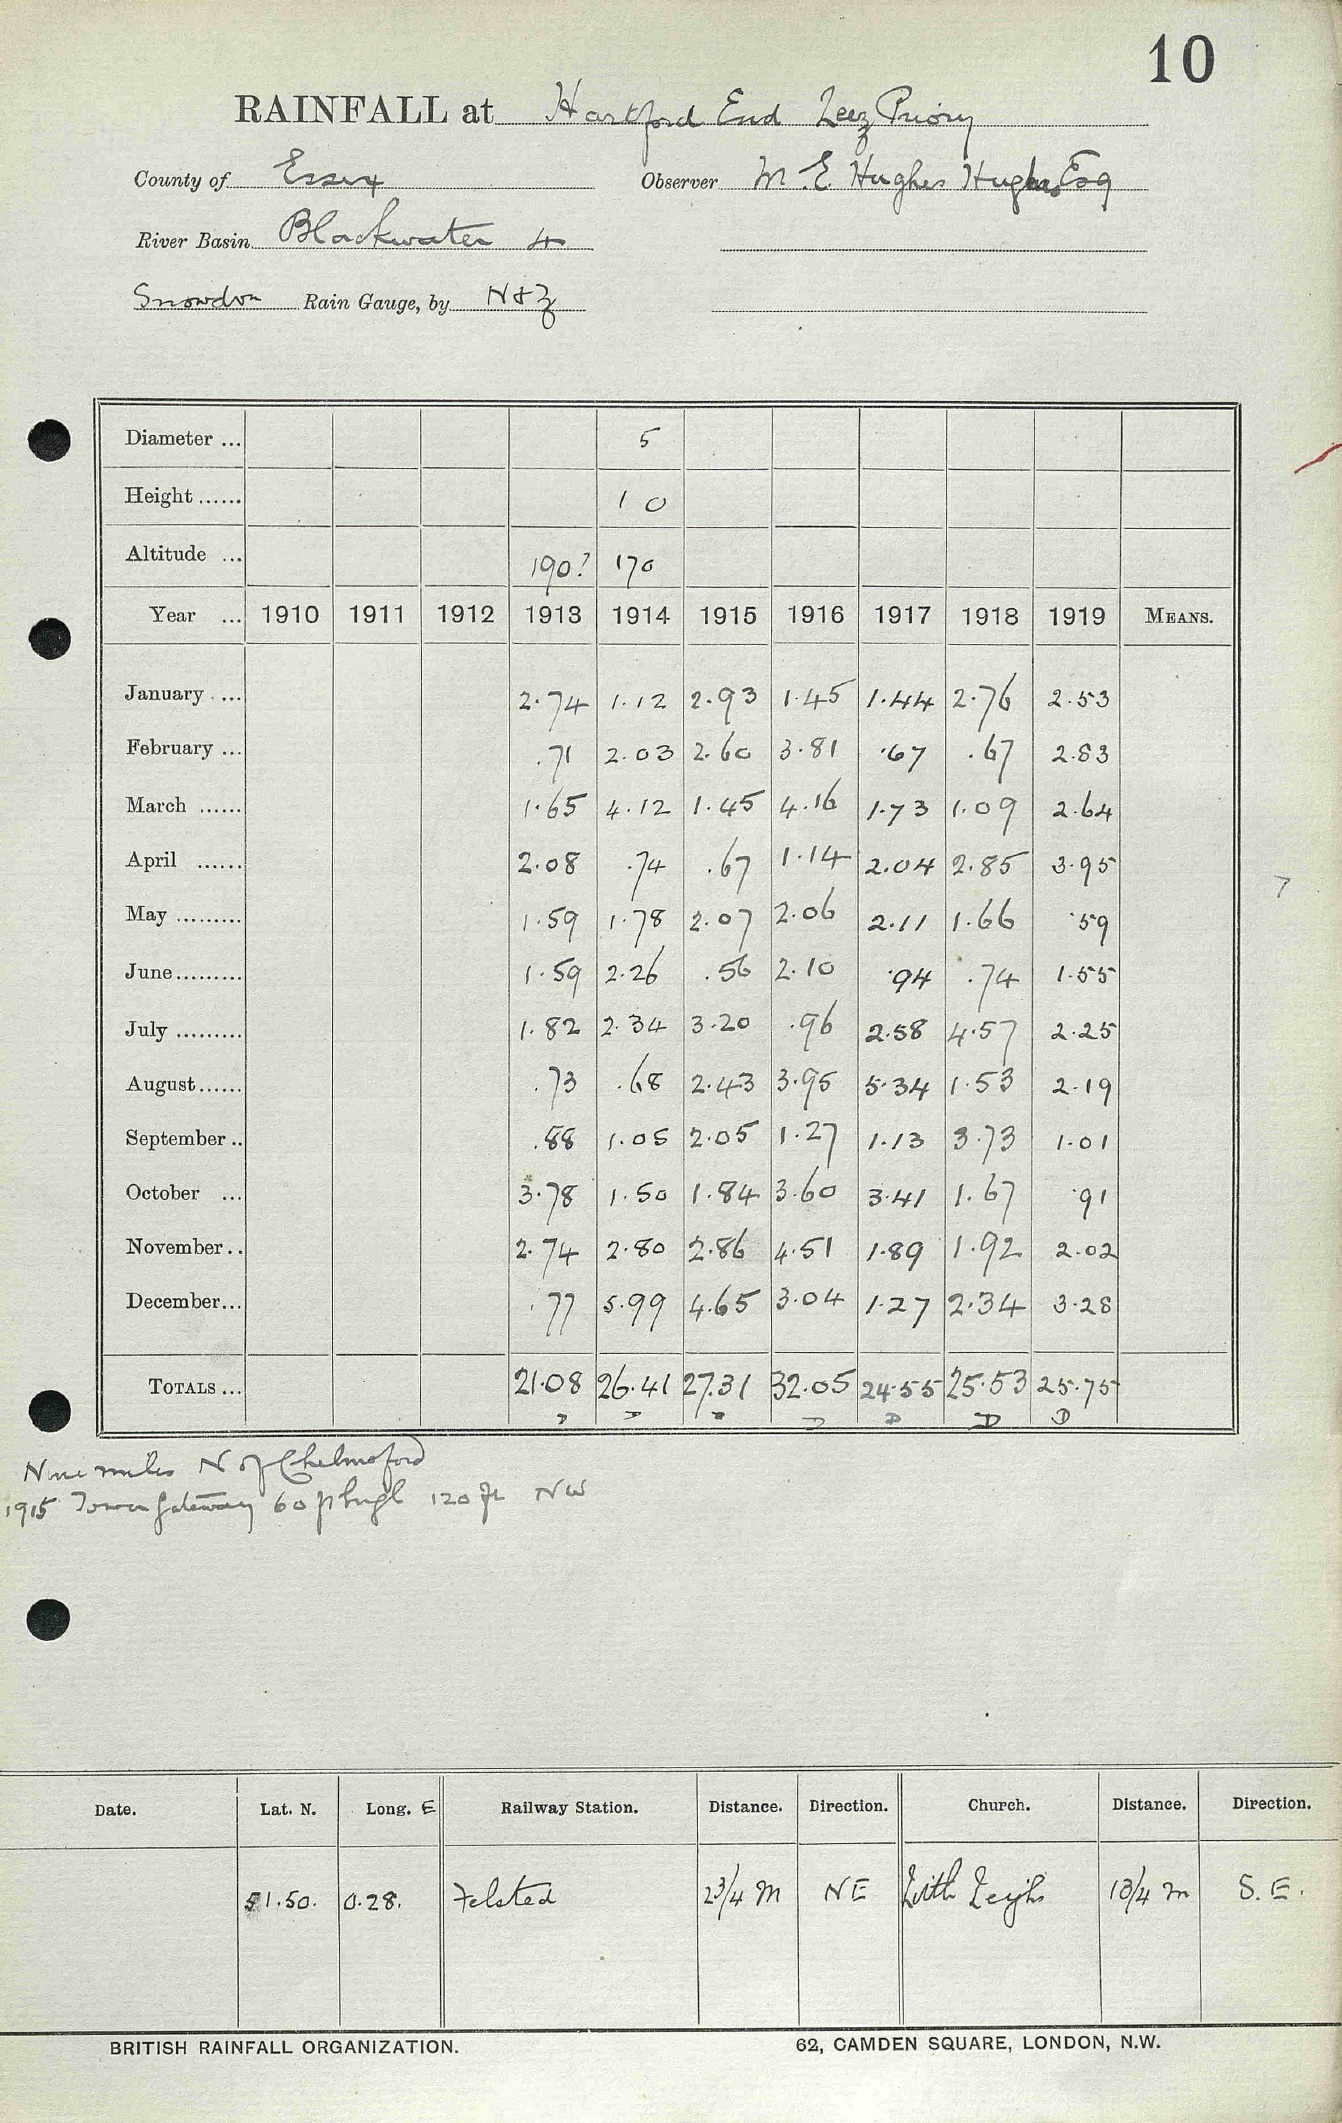 10
RAINFALL at Hartford End Leez Priory
County of Essex Observer M. E. Hughes Hughes Esq
River Basin Blackwater 4
Snowdon Rain Gauge, by N & Z
Diameter ... 5
Height ...... 1 0
Altitude ... 190? 170
Year ... 1910 1911 1912 1913 1914 1915 1916 1917 1918 1919 MEANS.
January ... 2.74 1.12 2.93 1.45 1.44 2.76 2.53
February ... .71 2.03 2.60 3.81 .67 .67 2.83
March ...... 1.65 4.12 1.45 4.16 1.73 1.09 2.64
April ...... 2.08 .74 .67 1.14 2.04 2.85 3.95
May ......... 1.59 1.78 2.07 2.06 2.11 1.66 .59
7
June ......... 1.59 2.26 .56 2.10 .94 .74 1.55
July ......... 1.82 2.34 3.20 .96 2.58 4.57 2.25
August ...... .73 .68 2.43 3.95 5.34 1.53 2.19
September .. .88 1.05 2.05 1.27 1.13 3.73 1.01
October ... 3.78 1.50 1.84 3.60 3.41 1.67 .91
November .. 2.74 2.80 2.86 4.51 1.89 1.92 2.02
December ... .77 5.99 4.65 3.04 1.27 2.34 3.28
TOTALS ... 21.08 26.41 27.31 32.05 24.55 25.53 25.75
D D D D D D D
Nine miles N of Chelmsford
1915 Tower Gateway 60 ft high 120 ft NW
Date. Lat. N. Long. E Railway Station. Distance. Direction. Church. Distance. Direction.
51.50. 0.28. Felsted 2 3/4 M NE Leighs 1 3/4 m S. E.
BRITISH RAINFALL ORGANIZATION. 62, CAMDEN SQUARE, LONDON, N.W.